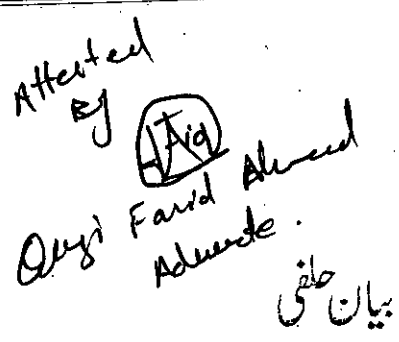 Attested
By
Qazi Farid Ahmed
Advocate.
بیان حلفی